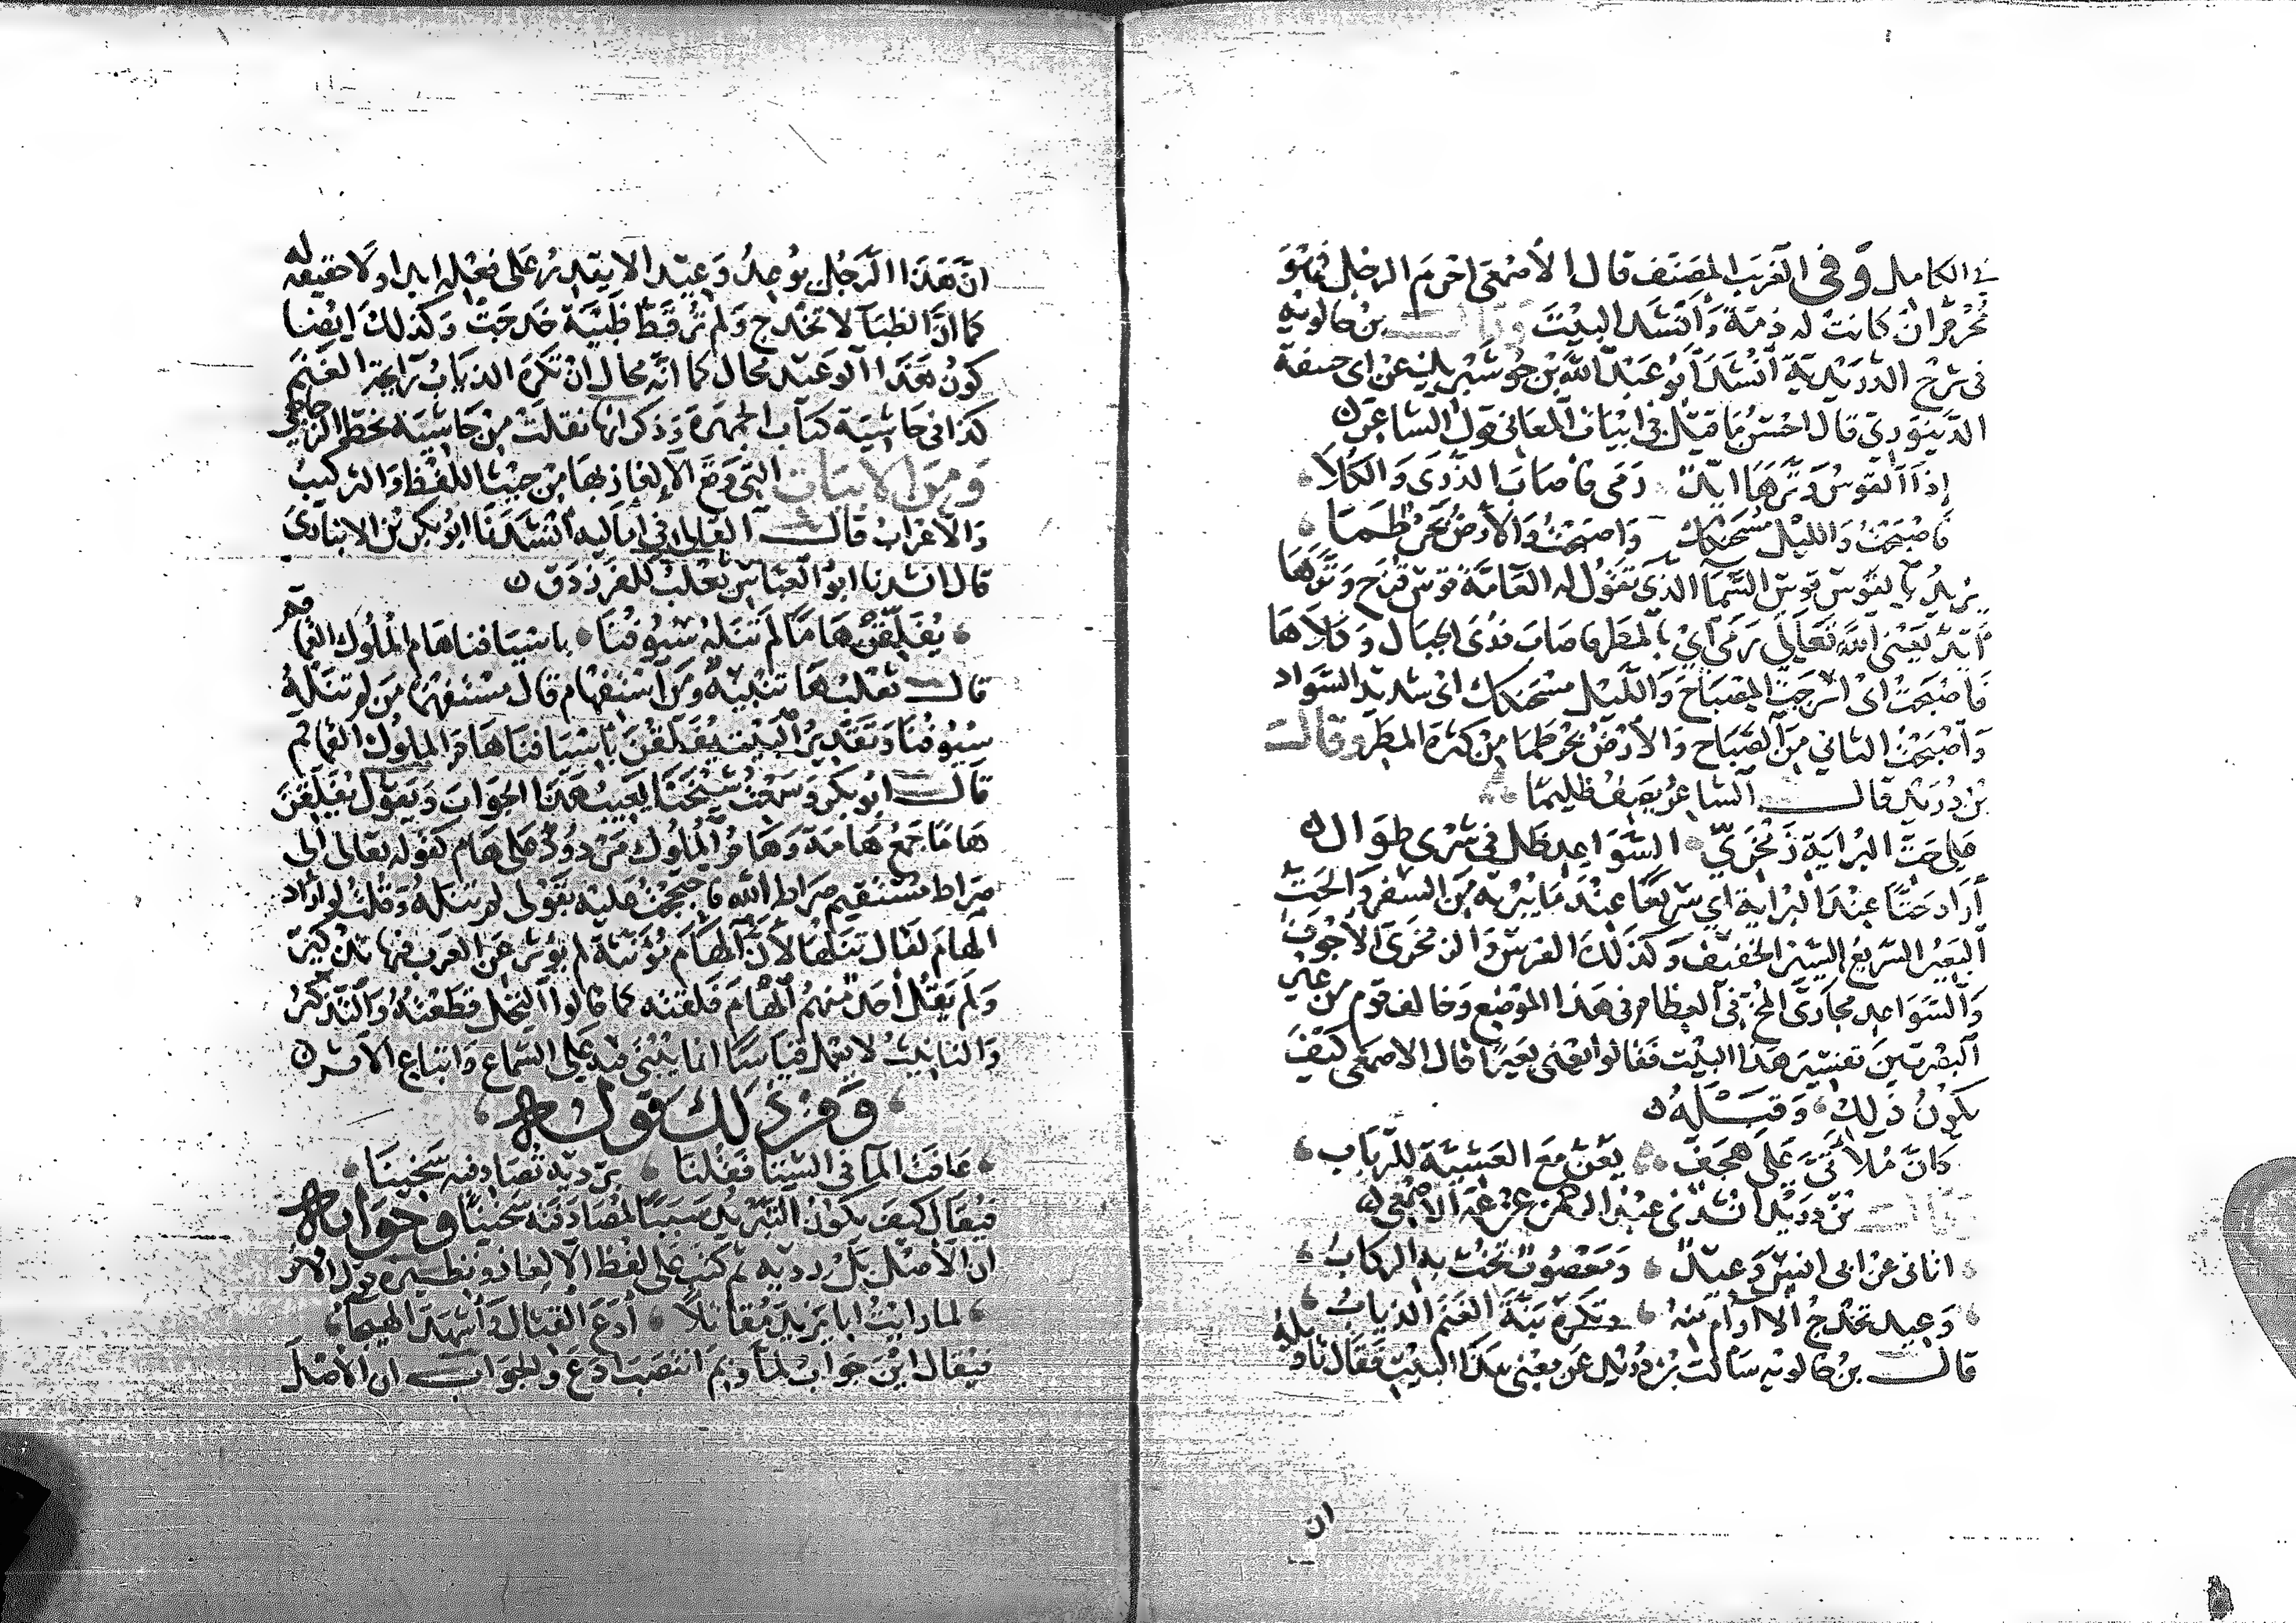 في الكامل وفي الغريب المصنف قال الأصمعي احرم الرجل فهو
محرم ان كانت له ذمة وأنشد البيت وقال بن خالويه
في شرح الدريدية أنشد أبو عبد الله بن خوشيريد عن ابى حنيفة
الدينوري قال احسن ما قيل في ابيات المعاني قول الشاعر
إذا القوس وترها ايد رمى فاصاب الذرى والكلا
فاصبحت والليل مسحنكك واصبحت والأرض بحر طما
يريد بالقوس قوس السما الذي تقول له العامة قوس قزح وترها
ايد يعني الله تعالى رمى اي بالمطر فاصاب ذرى الجبال وكلاها
فاصبحت اى اسرجت المصباح والليل مسحنكك اى شديد السواد
واصبحت الثاني من الصباح والأرض بحر طما من كثرة المطر وقال
بن دريد قال الشاعر يصف ظليما
على حت البراية زمخري السواعد ظل في شرى طوال
أراد حتا عند البراية اي سريعا عند ما يبريه من السفر والحت
البعير السريع السير الخفيف وكذلك الفرس والزمخرى الأجوف
والسواعد مجارى المخ في العظام في هذا الموضع وخالف قوم من علي
البصريين تفسير هذا البيت فقالوا يعني بعيرا قال الاصمعي كيف
يكون ذلك وقبله
كان ملاتي على هجف يعن مع العشية للرباب
قال بن دريد انشدني عبد الرحمن عن عمه الاصمعي
اتاني عن ابى انس وعيد ومعصوب تخب به الركاب
وعيد تخدج الاارام منه وتكره بنة الغنم الذياب
قال بن خالويه سألت بن دريد عن معنى هذا البيت فقال تاويله
ان
ان هذا الرجل يوعد وعيدا لا يقدر على فعله ابدا ولا حقيقة له
كما ان الظبا لا تخدج ولم تر قط ظبية خدجت وكذلك ايضا
كون هذا الوعيد محال كما انه محال ان تكره الذياب رايحة الغنم
كذا في حاشية كتاب الجمهرة وذكر انها نقلت من حاشية بخط الزجاجي
ومن الابيات التي وقع الإلغاز بها من حيث اللفظ والتركيب
والاعراب قال القالي في اماليه أنشدنا ابو بكر بن الانباري
قال انشدنا ابو العباس ثعلب للفرزدق
يفلقن هامَا لم تنله سيوفنا باسيافنا هام الملوك القماقم
قال ثعلب ها تنبيه ومن استفهام قال مستفهما من لم تنله
سيوفنا وتقدير البيت يفلقن باسيافنا هام الملوك القماقم
قال ابو بكر وسمعت شيخنا يعيب هذا الجواب ويقول يفلقن
هاما جمع هامة وهام الملوك مردود على هام كقوله تعالى الى
صراط مستقيم صراط الله فاحتججت عليه بقولي لم تنله وقلت لو اراد
الهام لقال تنلها لأن الهام مؤنثة لم يؤثر عن العرب فيها تذكير
ولم يقل احد منهم الهام فلقته كما قالوا النخل قطعته والتذكير
والتانيث لا يعمل قياسا انما يبنى فيه على السماع واتباع الاثر
ومن ذلك قوله
عافت الما في الشتا فقلنا برديه تصادفيه سخينا
فيقال كيف يكون التبريد سببا لمصادفته سخينا وجوابه
ان الأصل بل رديه ثم كتب على لفظ الإلغاز ونظيره قول الاخر
لما رايت ابا يزيد مقاتلا أدع القتال وأشهد الهيجا
فيقال اين جواب لما وبم انتصب ادع والجواب ان الأصل